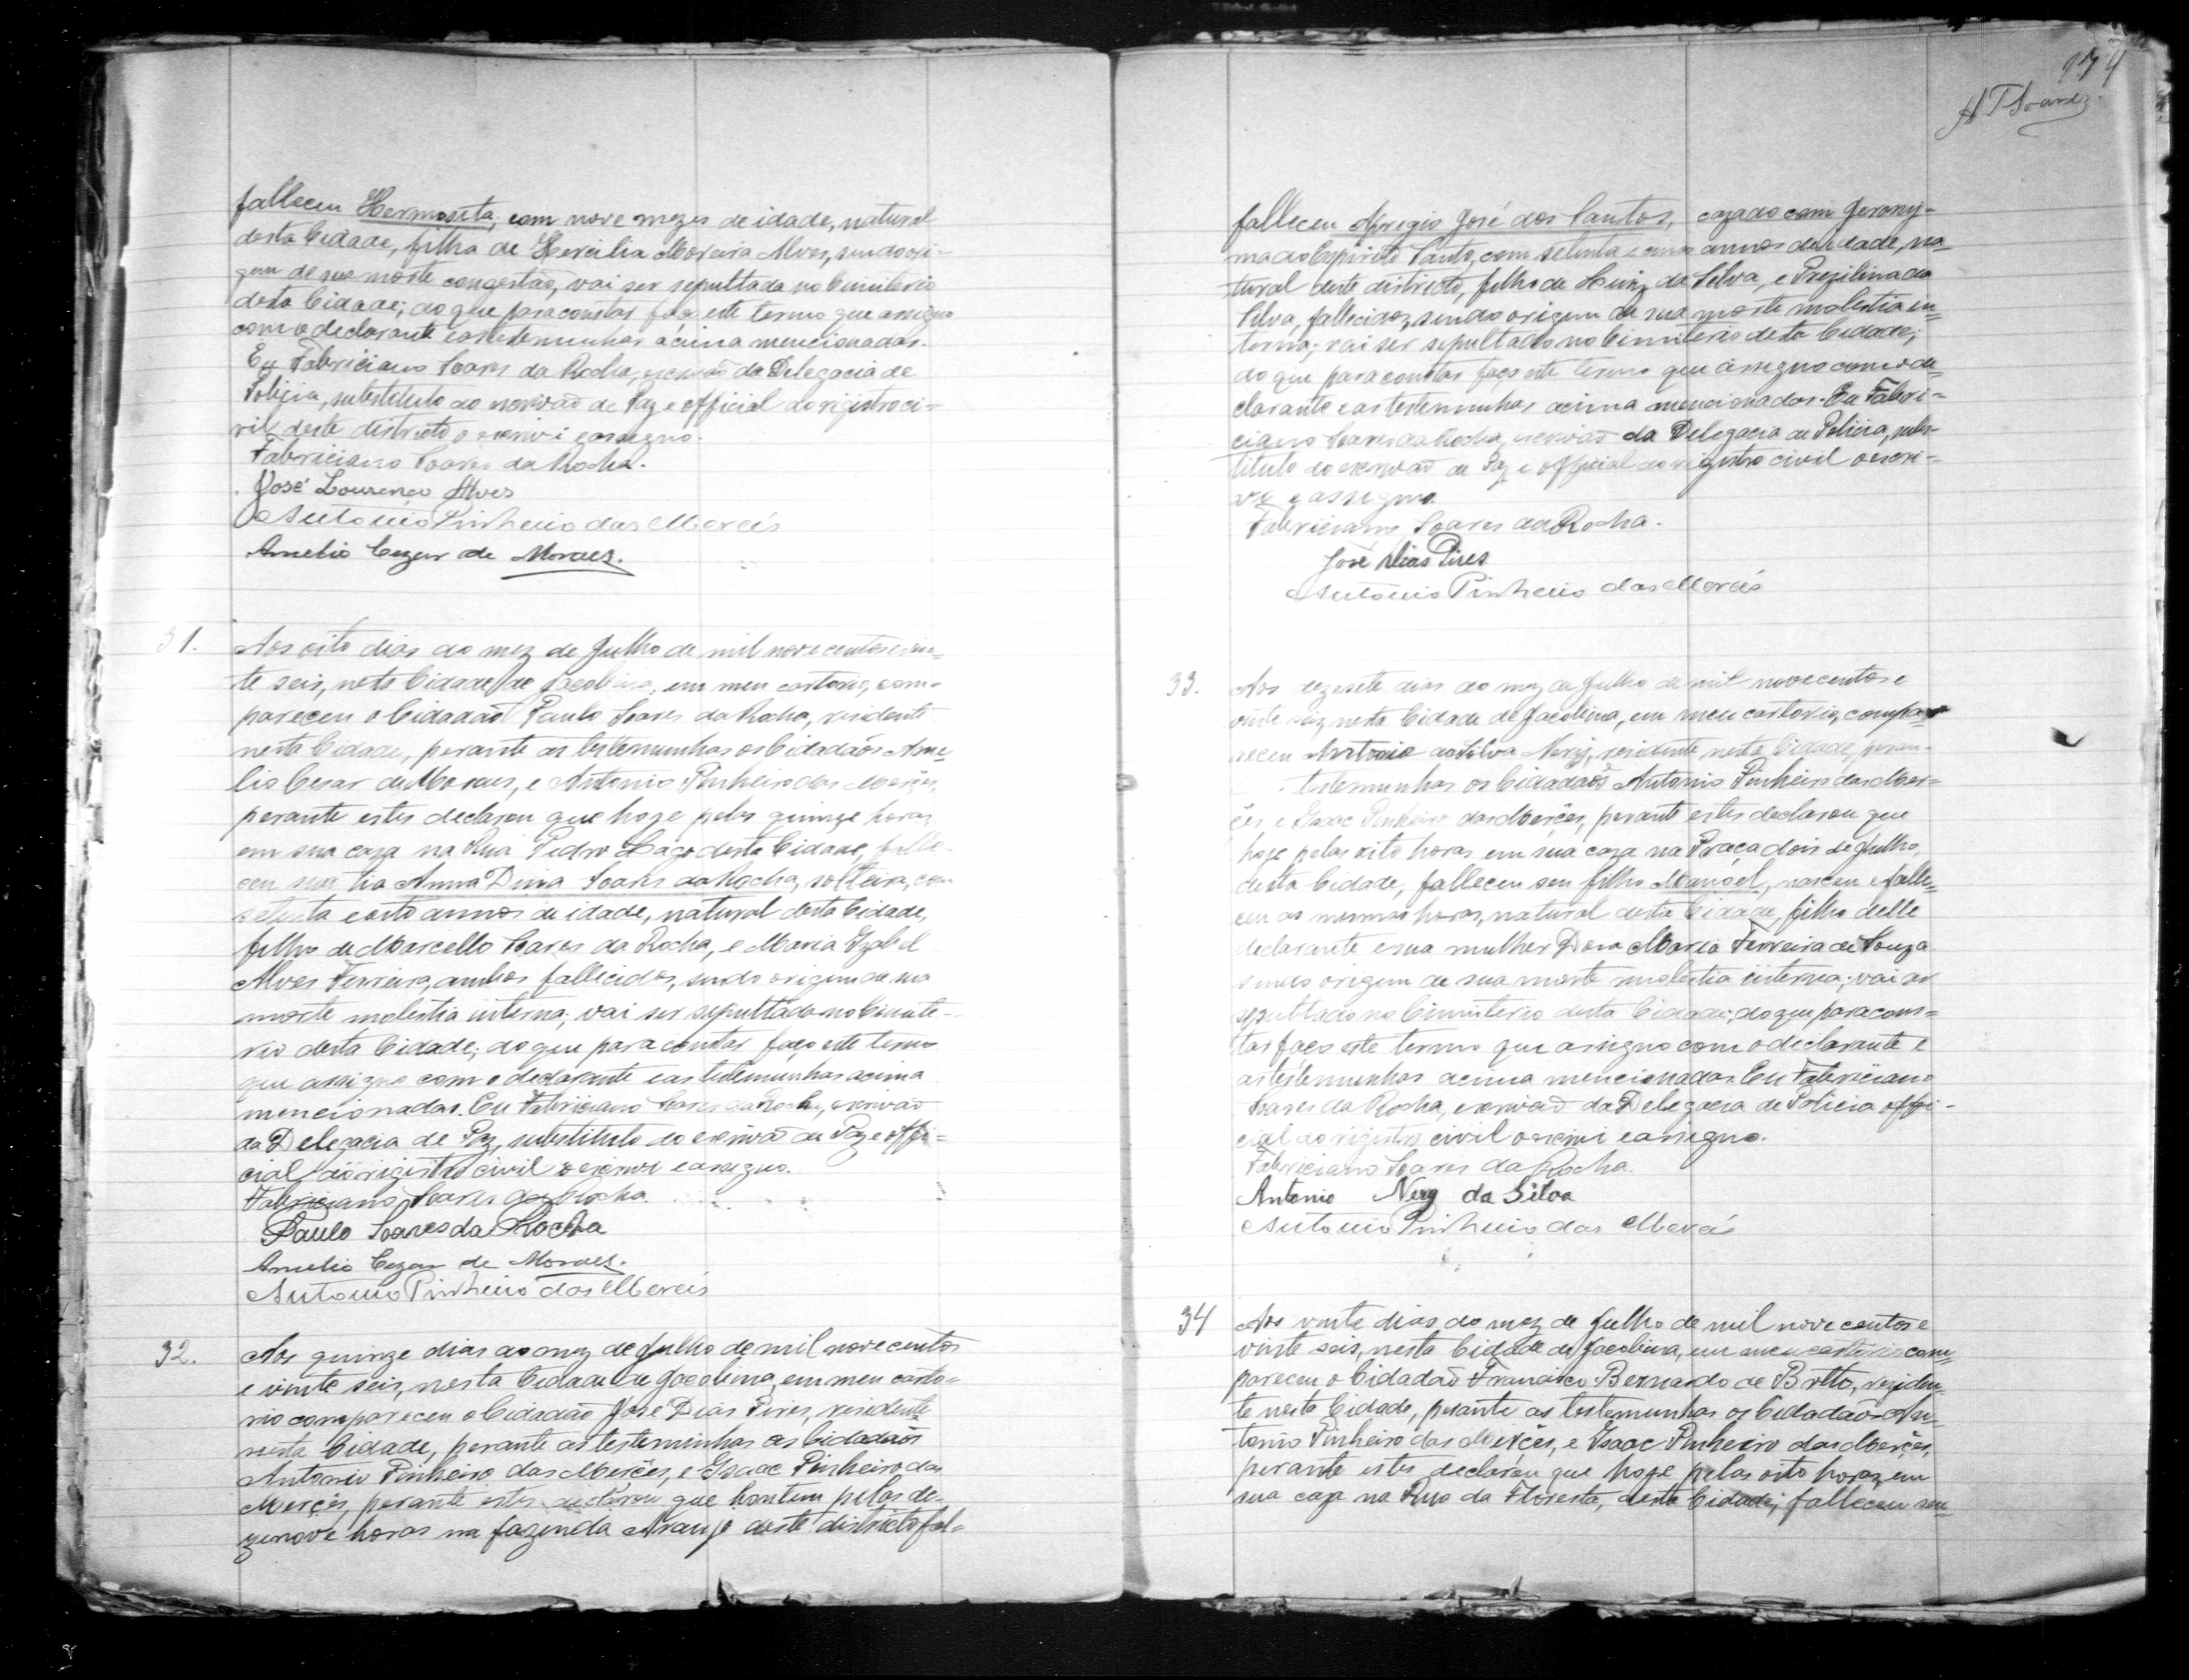 falleceu Hermosita, com nove mezes de idade, natural
desta Cidade, filha de Hercilia Moreira Alves, sendo ori-
gem de sua morte congestão, vai ser sepultada no Cimiterio
desta Cidade; do que para constar faço este termo que assigno
com o declarante e as testemunhas acima mencionadas.
Eu Fabriciano Soares da Rocha, escrivaõ da Delegacia de
Policia, substituto do escrivaõ de Paz e official do rigistro ci-
vil deste districto o escrivi e assigno.
Fabriciano Soares da Rocha.
José Lourenço Alves
Antonio Pinheiro das Mercês
Amelio Cezar de Moraes.
31. Aos oito dias do mez de Julho de mil nove centos e vin-
te seis, nesta Cidade de Jacobina, em meu cartorio, com-
pareceu o Cidadaõ Paulo Soares da Rocha, residente
nesta Cidade, perante as testemunhas os Cidadaõs Ame-
lio Cesar de Moraes, e Antonio Pinheiro das Mercês,
perante estes declarou que hoje pelas quinze horas
em sua caza na Rua Pedro Lago desta Cidade, falle-
ceu sua tia Anna Diva Soares da Rocha, solteira, com
setenta e oito annos de idade, natural desta Cidade,
filha de Marcello Soares da Rocha, e Maria Izabel
Alves Ferreira, ambos fallicidos, sendo origem de sua
morte molestia interna; vai ser sepultada no Cimite-
rio desta Cidade; do que para constar faço este termo
que assigno com o declarante e as testemunhas acima
mencionadas. Eu Fabriciano Soares da Rocha, escrivaõ
da Delegacia de Paz, substituto do escrivaõ de Paz e offi-
cial do rigistro civil o escrivi e assigno.
Fabriciano Soares da Rocha
Paulo Soares da Rocha
Amelio Cezar de Moraes.
Antonio Pinheiro das Mercês
32. Aos quinze dias do mez de Julho de mil nove centos
e vinte seis, nesta Cidade de Jacobina, em meu carto-
rio compareceu o Cidadaõ José Dias Pires, residente
nesta Cidade, perante as testeminhas os Cidadaõs
Antonio Pinheiro das Mercês, e Isaac Pinheiro das
Mercês, perante estes declarou que hontem pelas de-
zenove horas na fazenda Araujo deste districto fal-
974
A T Soares
falleceu Aprigio José dos Santos, cazado com Jerony-
ma do Espirito Santo, com setenta e cinco annos de idade, na
tural deste districto, filho de Luiz da Silva, e Prezilina da
Silva, fallecidos, sendo origem de sua morte molestia in-
terna; vai ser sepultado no Cimiterio desta Cidade;
do que para constar faço este termo que assigno com o de-
clarante e as testemunhas acima mencionadas. Eu Fabri-
ciano Soares da Rocha, escrivaõ da Delegacia de Policia, subs-
tituto do escrivaõ de Paz e official do rigistro civil o escri-
vi e assigno.
Fabriciano Soares da Rocha.
José Dias Pires
Antonio Pinheiro das Mercês
33. Aos dezesete dias do mez de Julho de mil nove centos e
vinte seis, nesta Cidade de Jacobina, em meu cartorio, compa-
receu Antonio da Silva Nery, residente nesta Cidade, peran-
testemunhas os Cidadaõs Antonio Pinheiro das Mer-
cês, e Isaac Pinheiro das Mercês, perante estes declarou que
hoje pelas oito horas em sua caza na Praça dois de Julho,
desta Cidade, falleceu seu filho Manoel, nasceu e falle-
ceu as mesmas horas, natural desta Cidade, filho delle
declarante e sua mulher Dona Maria Ferreira de Souza
sendo origem de sua morte molestia interna; vai ser
sepultado no Cimiterio desta Cidade; do que para cons-
tar faço este termo que assigno com o declarante e
as testemunhas acima mencionadas. Eu Fabriciano
Soares da Rocha, escrivaõ da Delegacia de Policia offi-
cial do rigistro civil o escrivi e assigno.
Fabriciano Soares da Rocha.
Antonio Nery da Silva
Antonio Pinheiro das Mercês
34 Aos vinte dias do mez de Julho de mil nove centos e
vinte seis, nesta Cidade de Jacobina, em meu cartorio com-
pareceu o Cidadaõ Francisco Bernardo de Britto, residen-
te nesta Cidade, perante as testemunhas os Cidadaõs An-
tonio Pinheiro das Mercês, e Isaac Pinheiro das Mercês,
perante estes declarou que hoje pelas oito horas em
sua caza na Rua da Floresta, desta Cidade; falleceu seu